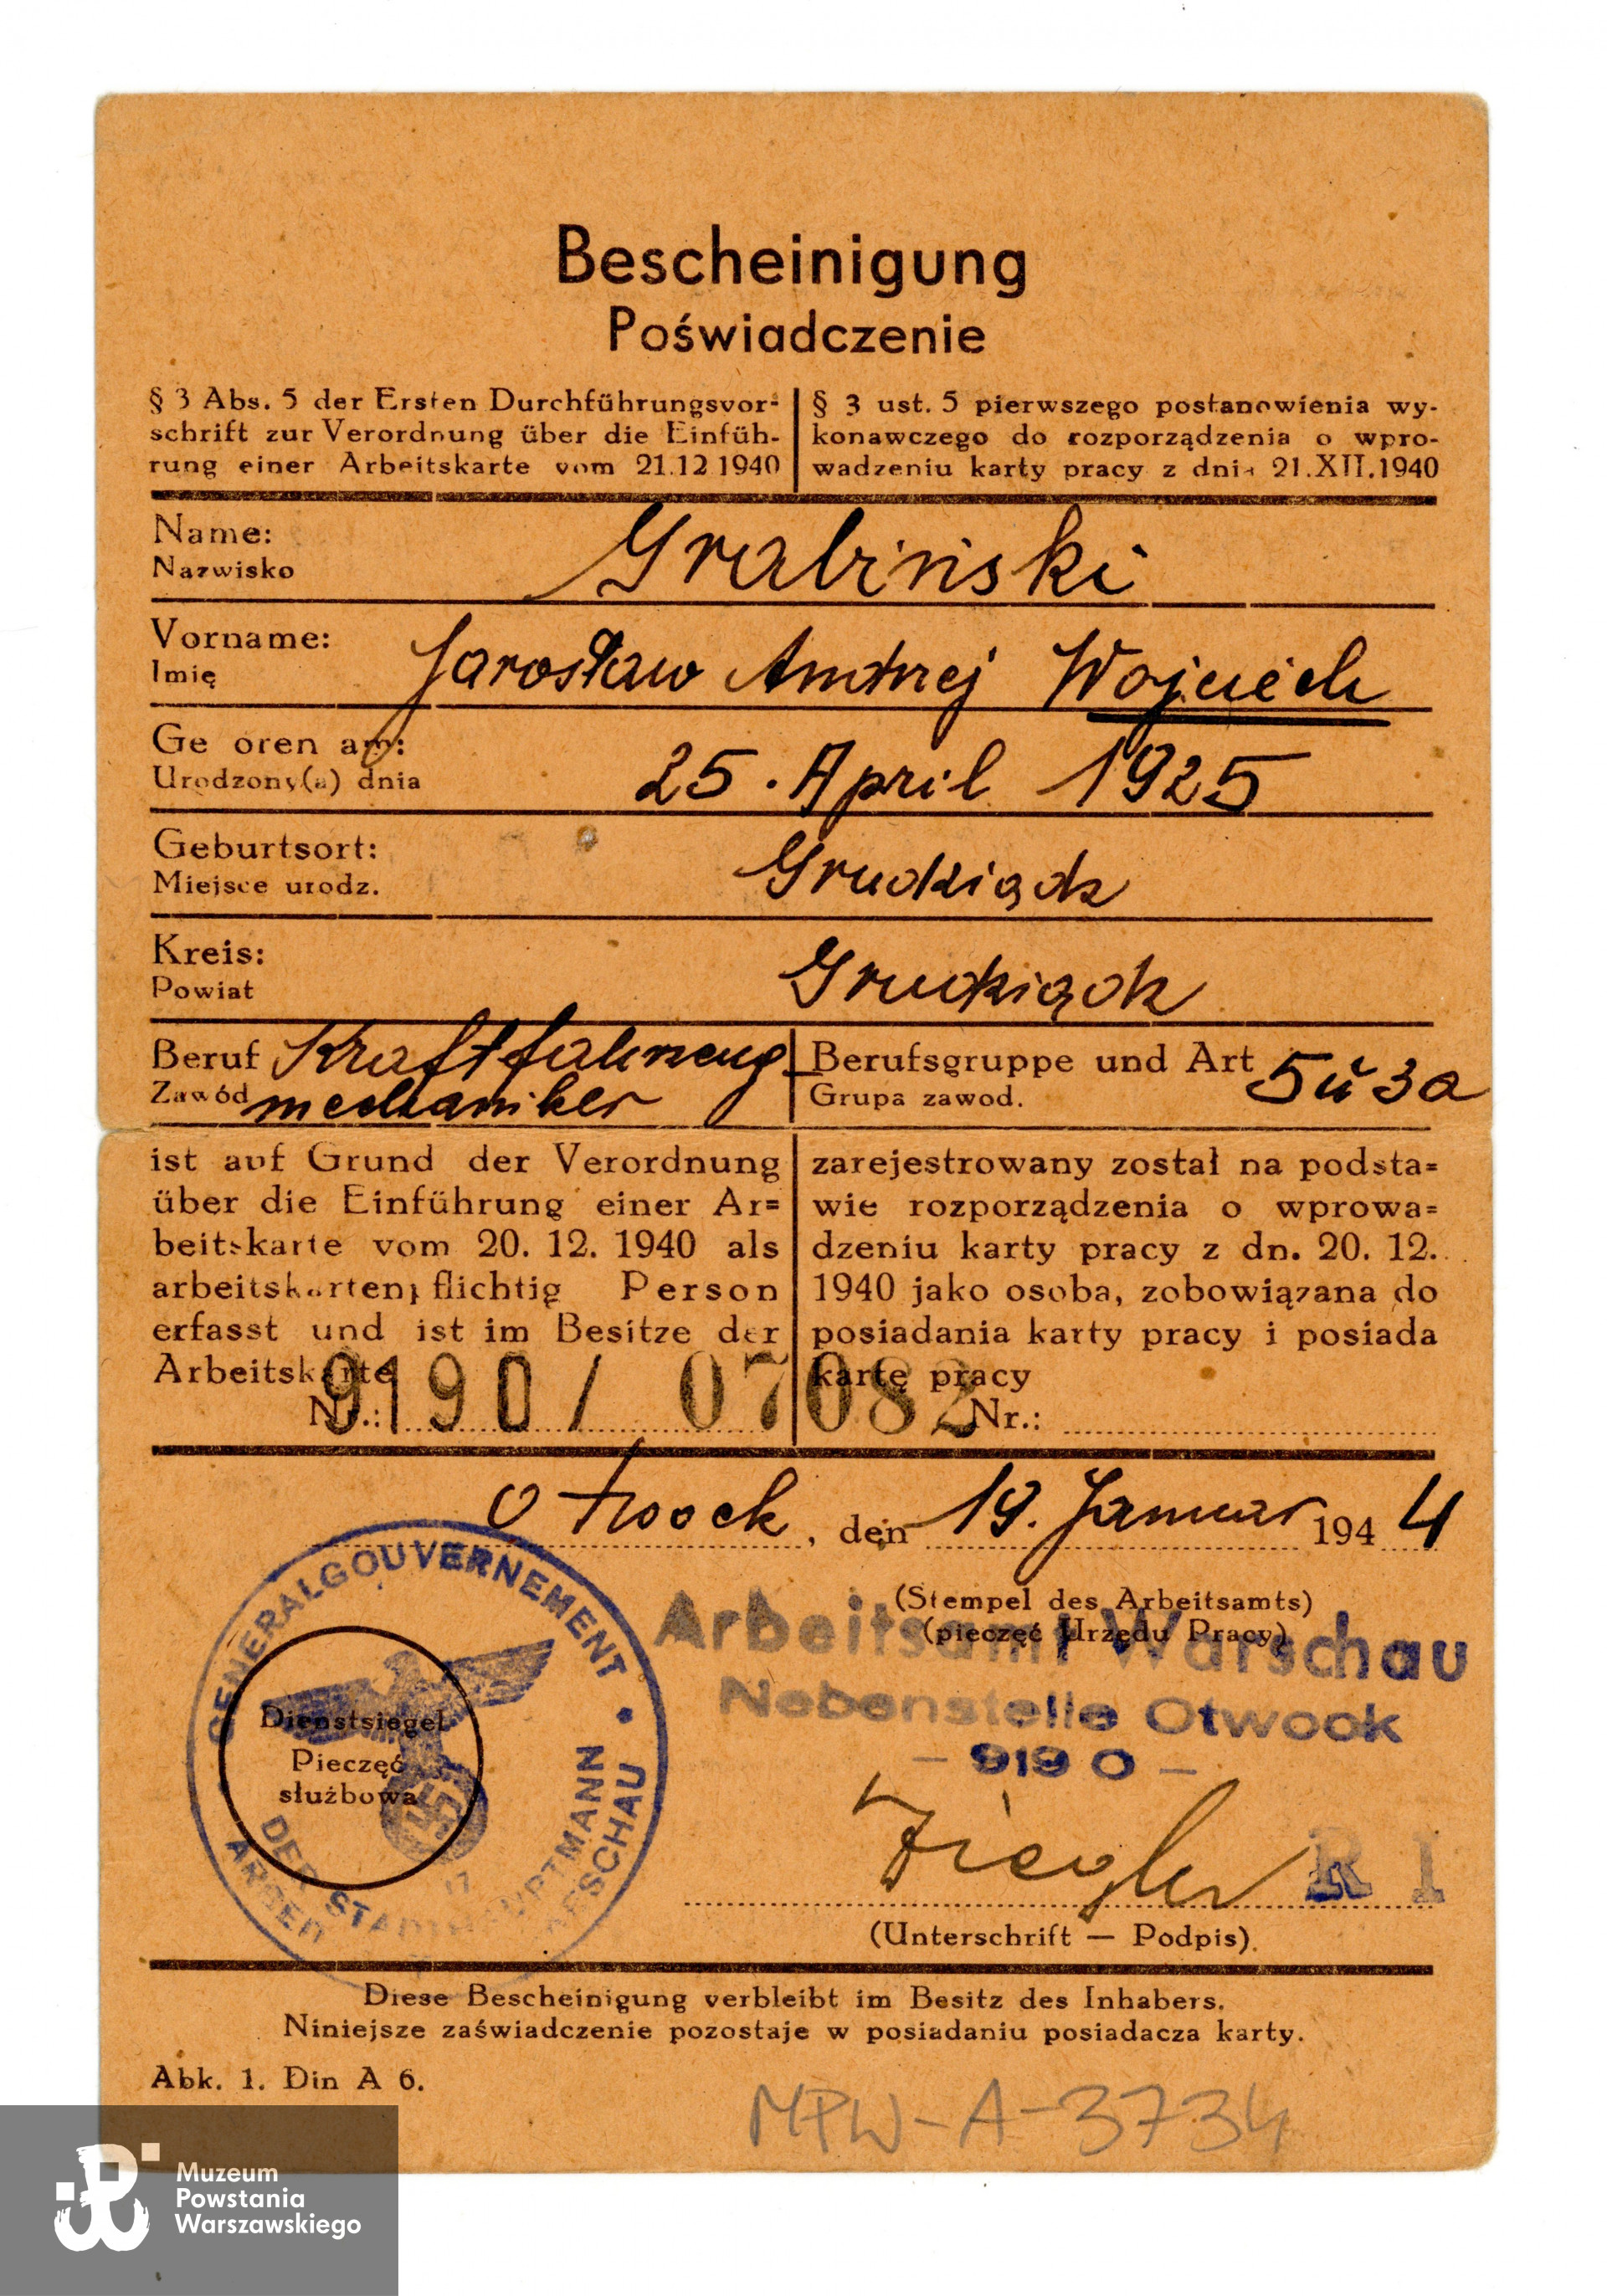 Bescheinigung
Poświadczenie
§ 3 Abs. 5 der Ersten Durchführungsvor-
schrift zur Verordnung über die Einfüh-
rung einer Arbeitskarte vom 21.12 1940
§ 3 ust. 5 pierwszego postanowienia wy-
konawczego do rozporządzenia o wpro-
wadzeniu karty pracy z dnia 21.XII.1940
Name: Grabinski
Nazwisko
Vorname: Jarosław Andrzej Wojciech
Imię
Ge oren am:
Urodzony(a) dnia 25. April 1925
Geburtsort: Grudziądz
Miejsce urodz.
Kreis: Grudziądz
Powiat
Beruf Kraftfahrzeug-
Zawód mechaniker
Berufsgruppe und Art 5 u 3a
Grupa zawod.
ist auf Grund der Verordnung
über die Einführung einer Ar=
beitskarte vom 20. 12. 1940 als
arbeitskartenpflichtig Person
erfasst und ist im Besitze der
Arbeitskarte
Nr.: 9190/ 07082
zarejestrowany został na podsta=
wie rozporządzenia o wprowa=
dzeniu karty pracy z dn. 20. 12.
1940 jako osoba, zobowiązana do
posiadania karty pracy i posiada
kartę pracy
Nr.:
Otwock, den 19. Januar 1944
(Stempel des Arbeitsamts)
(pieczęć Urzędu Pracy)
Arbeitsamt Warschau
Nebenstelle Otwock
– 9190 –
GENERALGOUVERNEMENT
DER STADTHAUPTMANN
Dienstsiegel
Pieczęć
służbowa
17
Ziegler R I
(Unterschrift — Podpis).
Diese Bescheinigung verbleibt im Besitz des Inhabers.
Niniejsze zaświadczenie pozostaje w posiadaniu posiadacza karty.
Abk. 1. Din A 6.
MPW-A-3734
Muzeum
Powstania
Warszawskiego